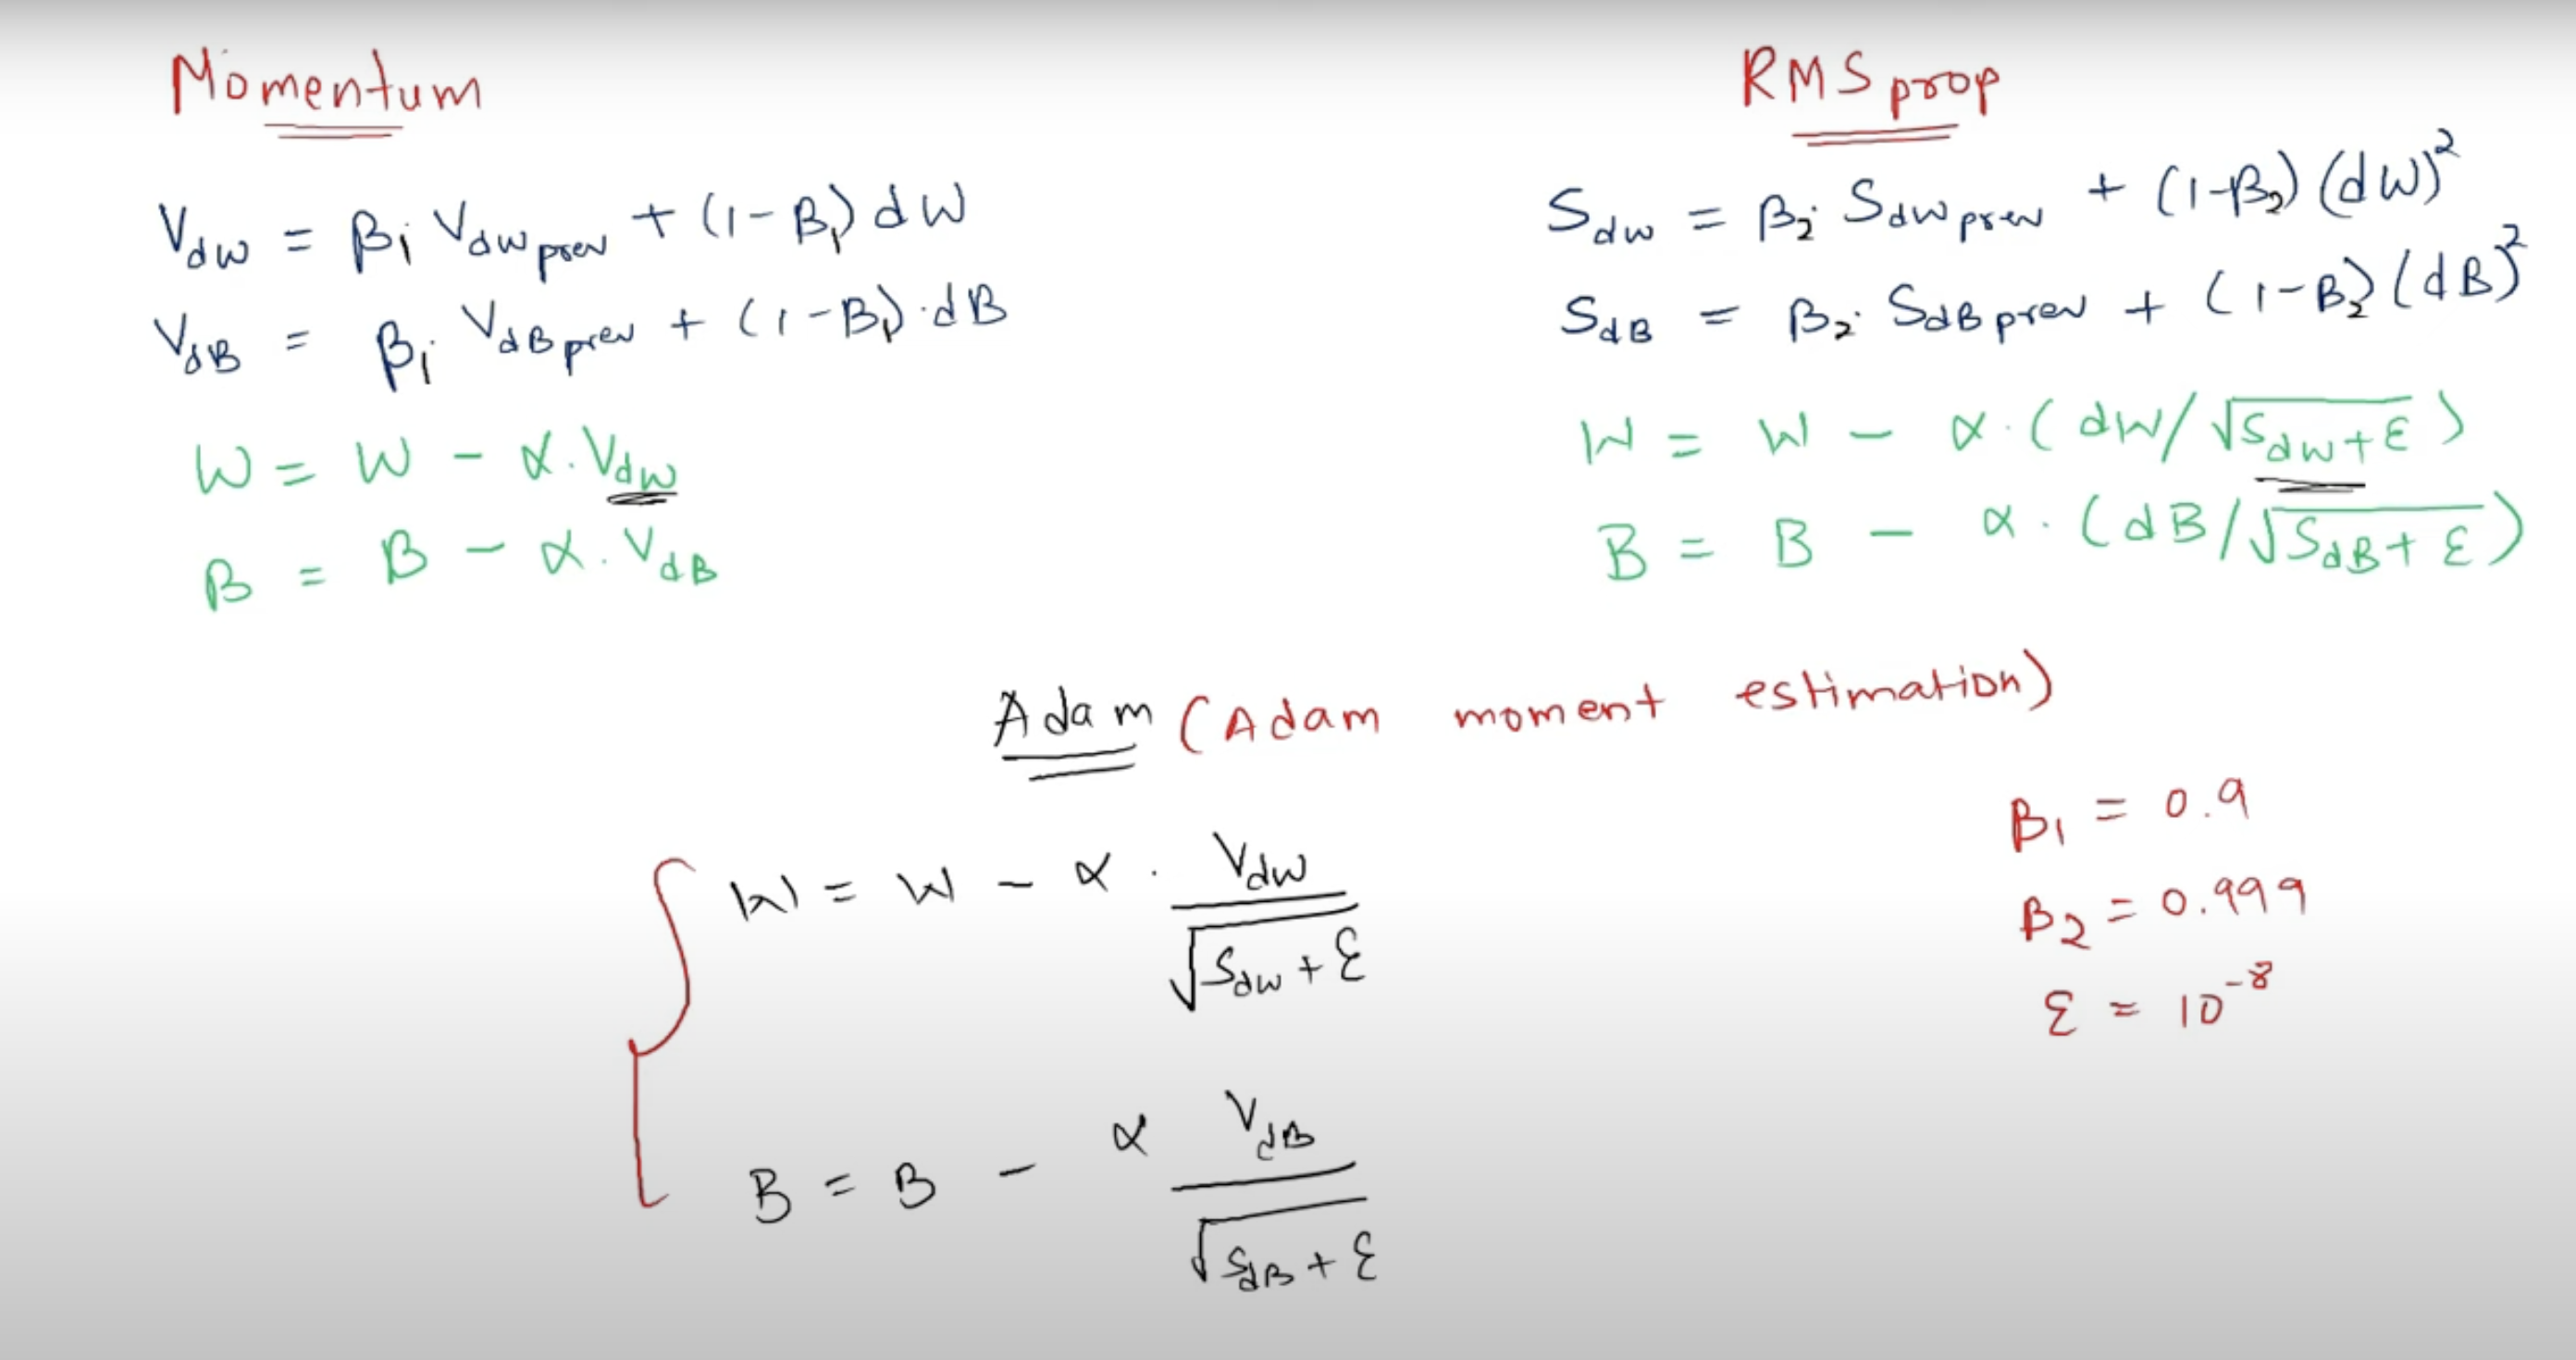 Momentum
V_dw = β₁ V_dw prev + (1-β₁) dW
V_dB = β₁ V_dB prev + (1-β₁).dB
W = W - α.V_dw
B = B - α.V_dB
RMS prop
S_dw = β₂ S_dw prev + (1-β₂) (dW)²
S_dB = β₂. S_dB prev + (1-β₂) (dB)²
W = W - α.(dW/√(S_dw+ε))
B = B - α.(dB/√(S_dB+ε))
Adam (Adam moment estimation)
W = W - α . V_dw / √(S_dw + ε)
B = B - α V_dB / √(S_dB + ε)
β₁ = 0.9
β₂ = 0.999
ε = 10⁻⁸